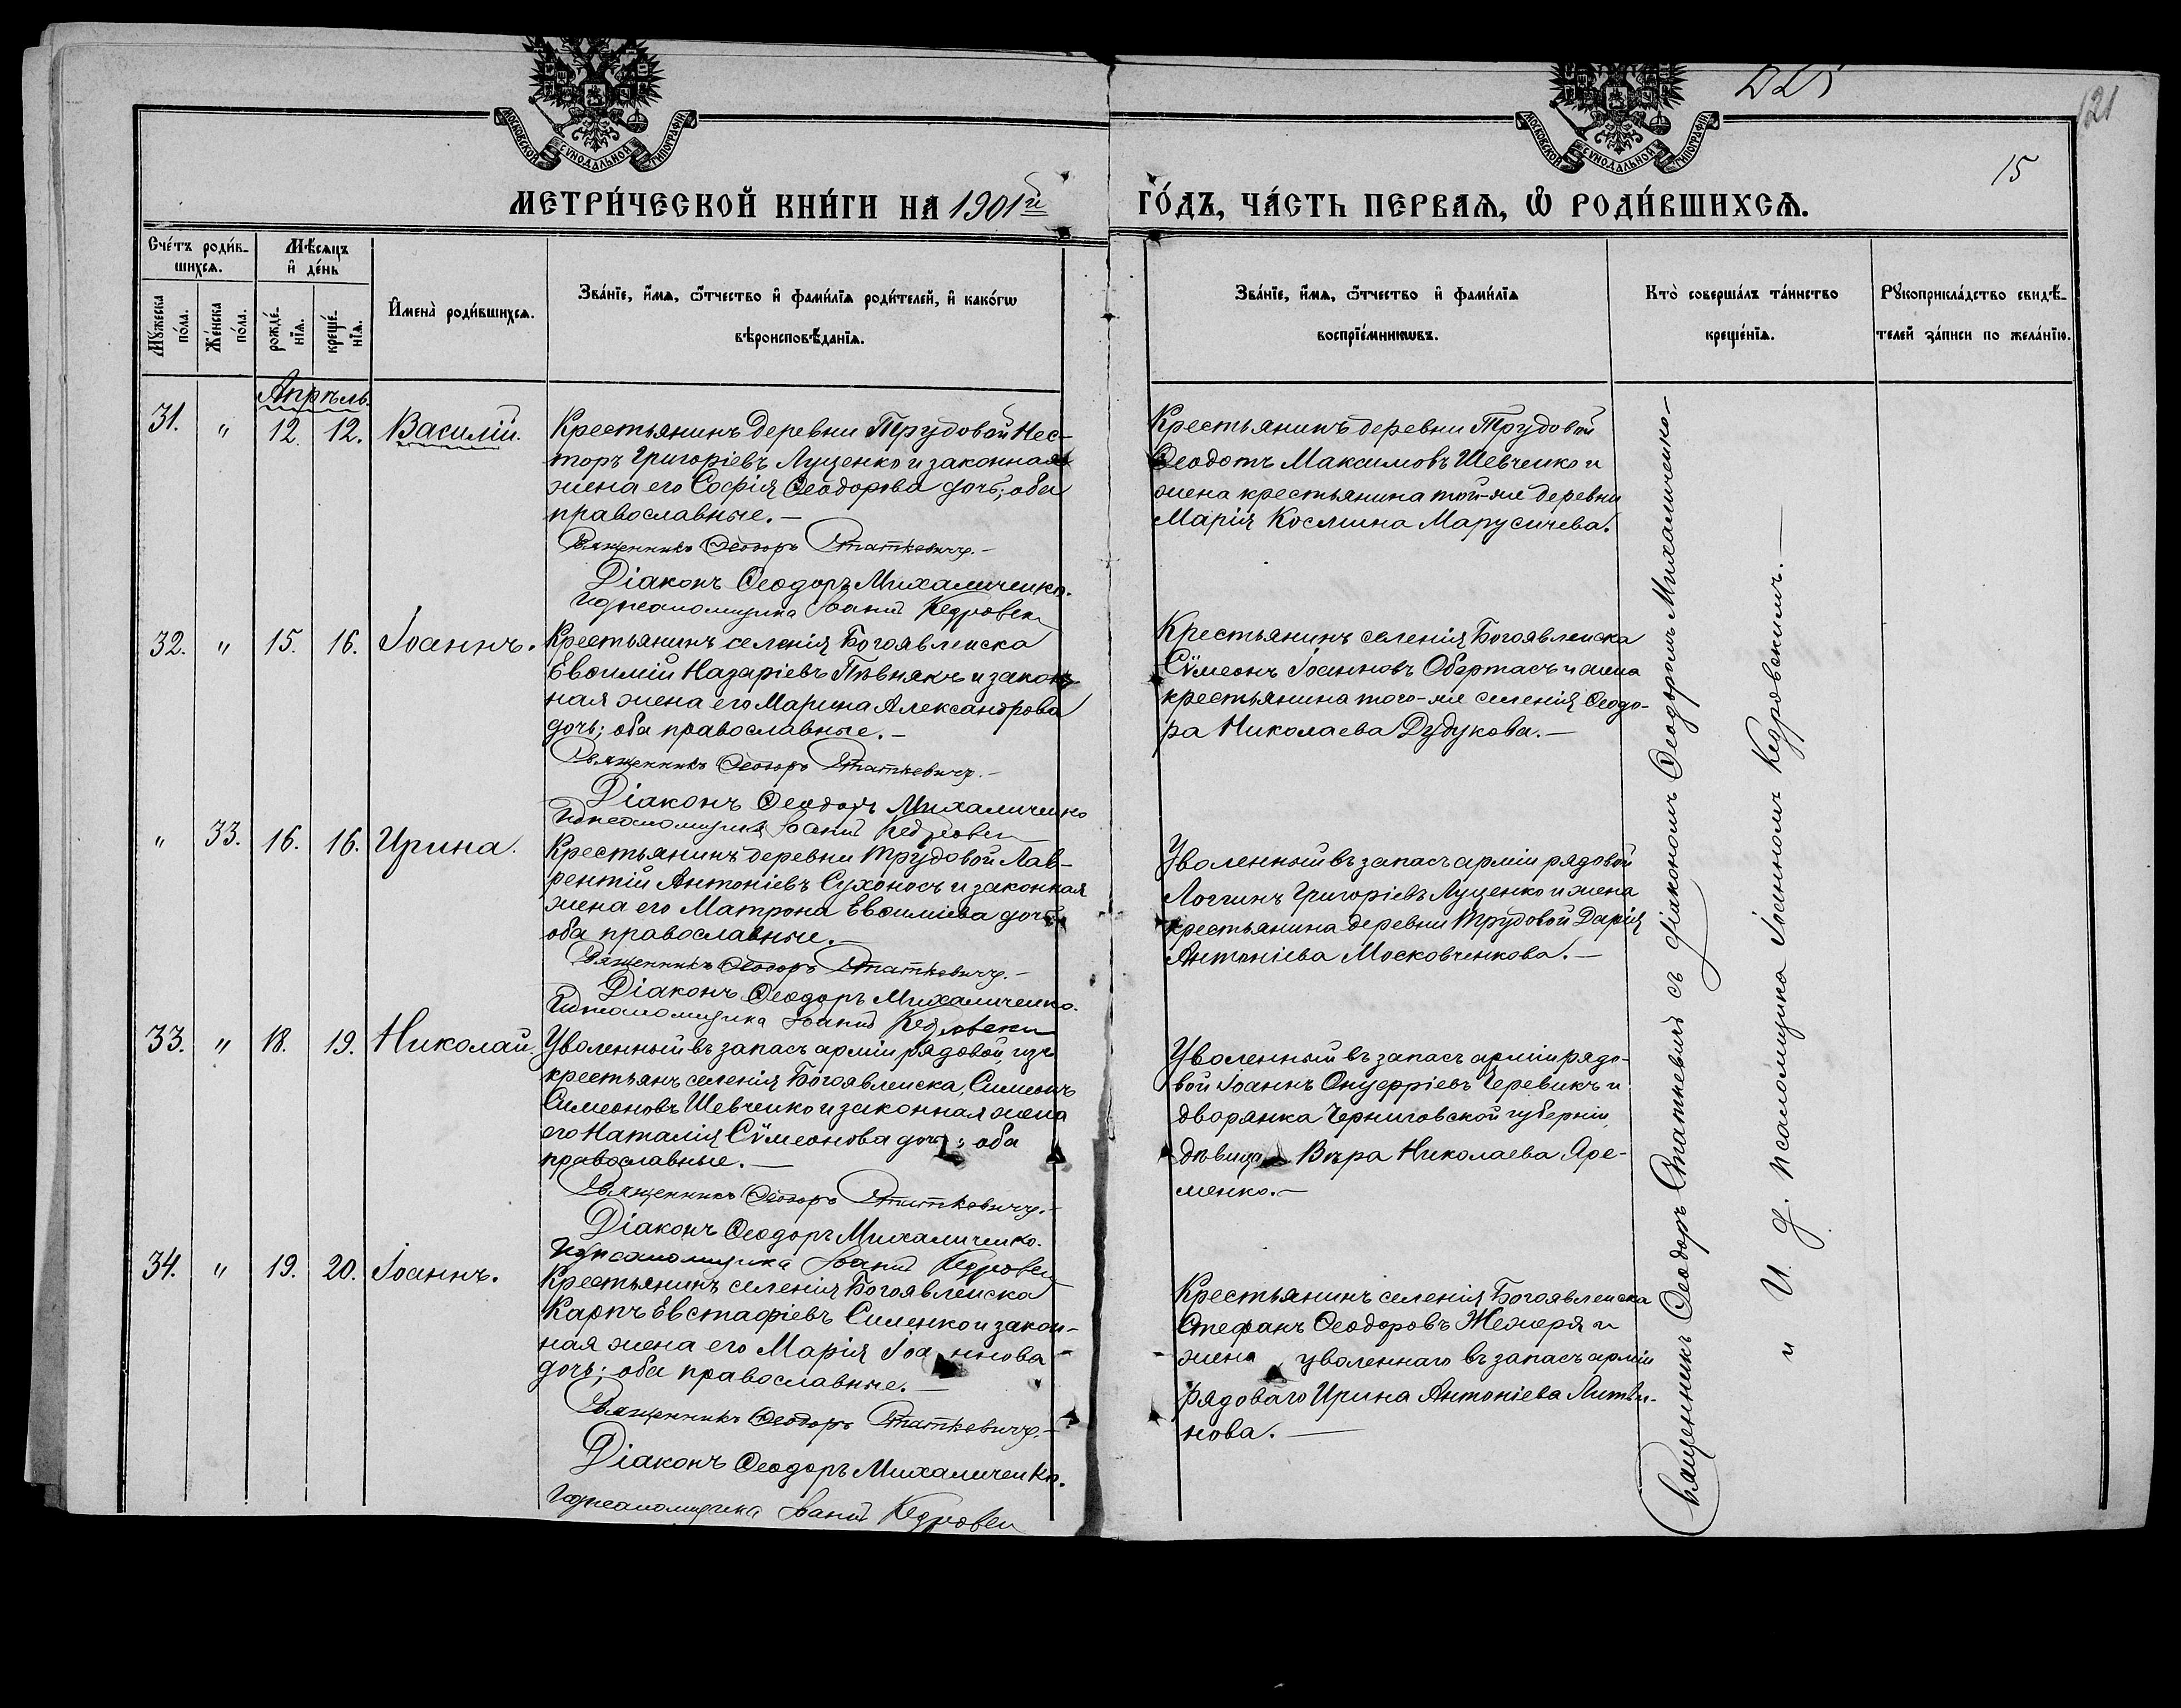 225
121
15
МОСКОВСКОЙ СѴНОДАЛЬНОЙ ТИПОГРАФІИ
МОСКОВСКОЙ СѴНОДАЛЬНОЙ ТИПОГРАФІИ
МЕТРИ́ЧЕСКОЙ КНИ́ГИ НА 1901й
ГО́ДЪ, ЧА́СТЬ ПЕРВАѦ, Ѡ РОДИ́ВШИХСѦ.
Сче́тъ роди́в-
шихсѧ.
Мꙋжеска
по́ла.
Же́нска
по́ла.
Мѣ́сѧцъ
и҆ де́нь
рожде́-
нїѧ.
креще́-
нїѧ.
И҆мена̀ роди́вшихсѧ.
Зва́нїе, и҆́мѧ, ѻ҆́тчество и҆ фами́лїѧ роди́телей, и҆ како́гѡ
вѣроисповѣ́данїѧ.
Зва́нїе, и҆́мѧ, ѻ҆́тчество и҆ фами́лїѧ
воспрїе́мникѡвъ.
Кто̀ соверша́лъ та́инство
креще́нїѧ.
Рꙋкоприкла́дство свидѣ́-
телей за́писи по жела́нїю.
Апрѣль.
31. " 12. 12. Василій.
Крестьянинъ деревни Трудовой Нес-
торъ Григоріевъ Луценко и законная
жена его Софія Ѳеодорова дочь; оба
православные.—
Священникъ Ѳеодоръ Статкевичъ.—
Діаконъ Ѳеодоръ Михаличенко.
И д псаломщика Іоаннъ Кедровск
Крестьянинъ деревни Трудовой
Ѳеодотъ Максимовъ Шевченко и
жена крестьянина той-же деревни
Марія Космина Марусичева.
32. " 15. 16. Іоаннъ.
Крестьянинъ селенія Богоявленска
Евѳимій Назаріевъ Пѣвнякъ и закон-
ная жена его Марина Александрова
дочь; оба православные.—
Священникъ Ѳеодоръ Статкевичъ.—
Діаконъ Ѳеодоръ Михаличенко
И д псаломщика Іоаннъ Кедровск
Крестьянинъ селенія Богоявленска
Сѵмеонъ Іоанновъ Обертасъ и жена
крестьянина того-же селенія Ѳеодо-
ра Николаева Дудукова.—
" 33. 16. 16. Ирина.
Крестьянинъ деревни Трудовой Лав-
рентій Антоніевъ Сухоносъ и законная
жена его Матрона Евѳиміева дочь;
оба православные.—
Священникъ Ѳеодоръ Статкевичъ.—
Діаконъ Ѳеодоръ Михаличенко.
И д псаломщика Іоаннъ Кедровски
Уволенный въ запасъ арміи рядовой
Логгинъ Григоріевъ Луценко и жена
крестьянина деревни Трудовой Дарія
Антоніева Московченкова.—
33. " 18. 19. Николай.
Уволенный въ запасъ арміи рядовой, изъ
крестьянъ селенія Богоявленска, Симеонъ
Симеоновъ Шевченко и законная жена
его Наталія Сѵмеонова дочь; оба
православные.—
Священникъ Ѳеодоръ Статкевичъ.—
Діаконъ Ѳеодоръ Михаличенко.
И д псаломщика Іоаннъ Кедровск
Уволенный въ запасъ арміи рядо-
вой Іоаннъ Онуфріевъ Черевикъ и
дворянка Черниговской губерніи,
дѣвица Вѣра Николаева Яре-
менко.—
34. " 19. 20. Іоаннъ.
Крестьянинъ селенія Богоявленска
Карпъ Евстафіевъ Силенко и закон-
ная жена его Марія Іоаннова
дочь; оба православные.—
Священникъ Ѳеодоръ Статкевичъ.—
Діаконъ Ѳеодоръ Михаличенко.
И д псаломщика Іоаннъ Кедровск
Крестьянинъ селенія Богоявленска
Стефанъ Ѳеодоровъ Жежеря и
жена уволеннаго въ запасъ арміи
рядоваго Ирина Антоніева Литви-
нова.—
Священникъ Ѳеодоръ Статкевичъ съ діакономъ Ѳеодоромъ Михаличенко—
и И. д. псаломщика Іоанномъ Кедровскимъ.—